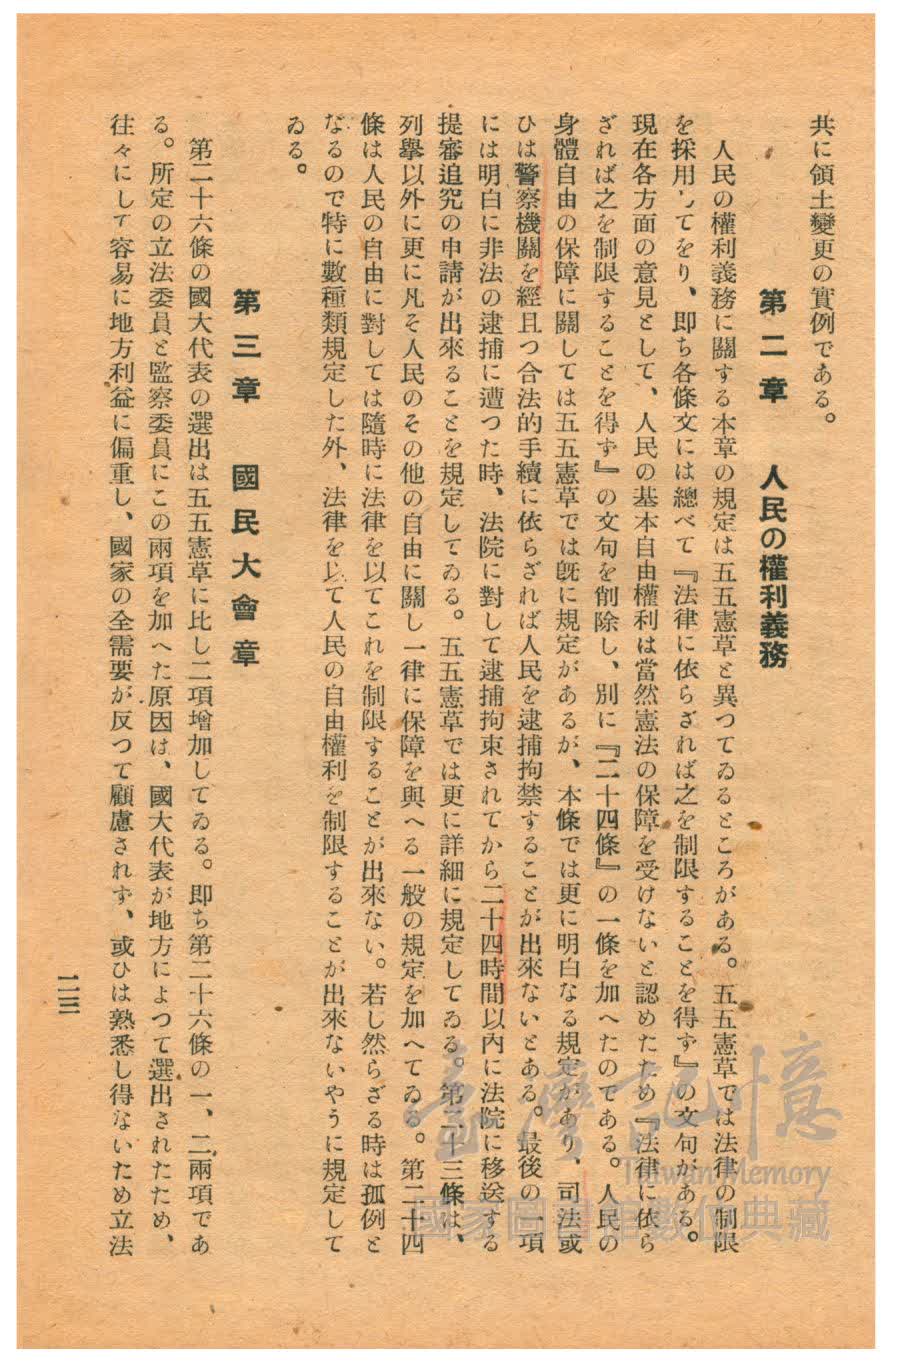 共に領土變更の實例である。
第二章　人民の權利義務
人民の權利義務に關する本章の規定は五五憲草と異つてゐるところがある。五五憲草では法律の制限
を採用してをり、卽ち各條文には總べて『法律に依らざれば之を制限することを得ず』の文句がある。
現在各方面の意見として、人民の基本自由權利は當然憲法の保障を受けないと認めたため『法律に依ら
ざれば之を制限することを得ず』の文句を削除し、別に『二十四條』の一條を加へたのである。人民の
身體自由の保障に關しては五五憲草では旣に規定があるが、本條では更に明白なる規定があり、司法或
ひは警察機關を經且つ合法的手續に依らざれば人民を逮捕拘禁することが出來ないとある。最後の一項
には明白に非法の逮捕に遭つた時、法院に對して逮捕拘束されてから二十四時間以內に法院に移送する
提審追究の申請が出來ることを規定してゐる。五五憲草では更に詳細に規定してゐる。第二十三條は、
列擧以外に更に凡そ人民のその他の自由に關し一律に保障を與へる一般の規定を加へてゐる。第二十四
條は人民の自由に對しては隨時に法律を以てこれを制限することが出來ない。若し然らざる時は孤例と
なるので特に數種類規定した外、法律を以て人民の自由權利を制限することが出來ないやうに規定して
ゐる。
第三章　國民大會章
第二十六條の國大代表の選出は五五憲草に比し二項增加してゐる。卽ち第二十六條の一、二兩項であ
る。所定の立法委員と監察委員にこの兩項を加へた原因は、國大代表が地方によつて選出されたため、
往々にして容易に地方利益に偏重し、國家の全需要が反つて顧慮されず、或ひは熟悉し得ないため立法
二三
臺灣記憶
Taiwan Memory
國家圖書館數位典藏